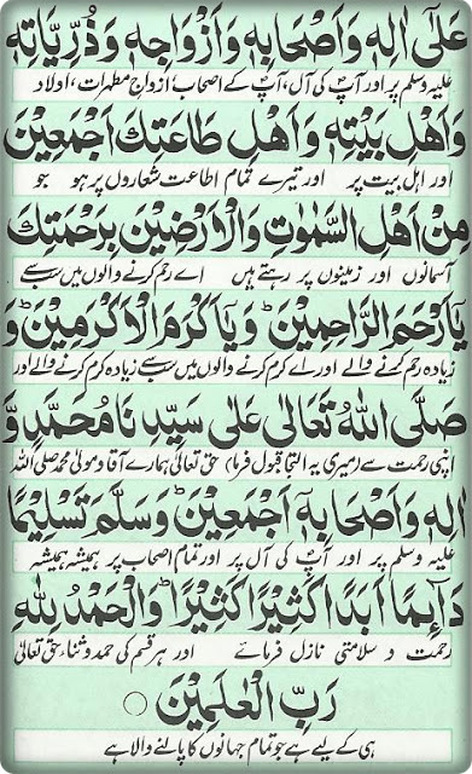 عَلٰٓى اٰلِهٖ وَاَصْحَابِهٖ وَاَزْوَاجِهٖ وَذُرِّيَّاتِهٖ
علیہ وسلم پر اور آپؐ کی آل، آپؐ کے اصحاب، ازواجِ مطہرات، اولاد
وَاَهْلِ بَيْتِهٖ وَاَهْلِ طَاعَتِكَ اَجْمَعِيْنَ
اور اہل بیت پر اور تیرے تمام اطاعت شعاروں پر ہو جو
مِنْ اَهْلِ السَّمٰوٰتِ وَالْاَرْضِيْنَ بِرَحْمَتِكَ
آسمانوں اور زمینوں پر رہتے ہیں اے رحم کرنے والوں میں سب سے
يَآ اَرْحَمَ الرَّاحِمِيْنَ ؕ وَيَآ اَكْرَمَ الْاَكْرَمِيْنَ ؕ وَ
زیادہ رحم کرنے والے اور اے کرم کرنے والوں میں سب سے زیادہ کرم کرنے والے اور
صَلَّى اللّٰهُ تَعَالٰى عَلٰى سَيِّدِنَا مُحَمَّدٍ وَّ
اپنی رحمت سے (میری یہ التجا قبول فرما) حق تعالیٰ ہمارے آقا و مولیٰ محمد صلی اللہ
اٰلِهٖ وَاَصْحَابِهٖٓ اَجْمَعِيْنَ ؕ وَسَلَّمَ تَسْلِيْمًا
علیہ وسلم پر اور آپؐ کی آل پر اور تمام اصحاب پر ہمیشہ ہمیشہ
دَآئِمًا اَبَدًا كَثِيْرًا كَثِيْرًا ؕ وَالْحَمْدُ لِلّٰهِ
رحمت و سلامتی نازل فرمائے اور ہر قسم کی حمد و ثناء حق تعالیٰ
رَبِّ الْعٰلَمِيْنَ ○
ہی کے لیے ہے جو تمام جہانوں کا پالنے والا ہے